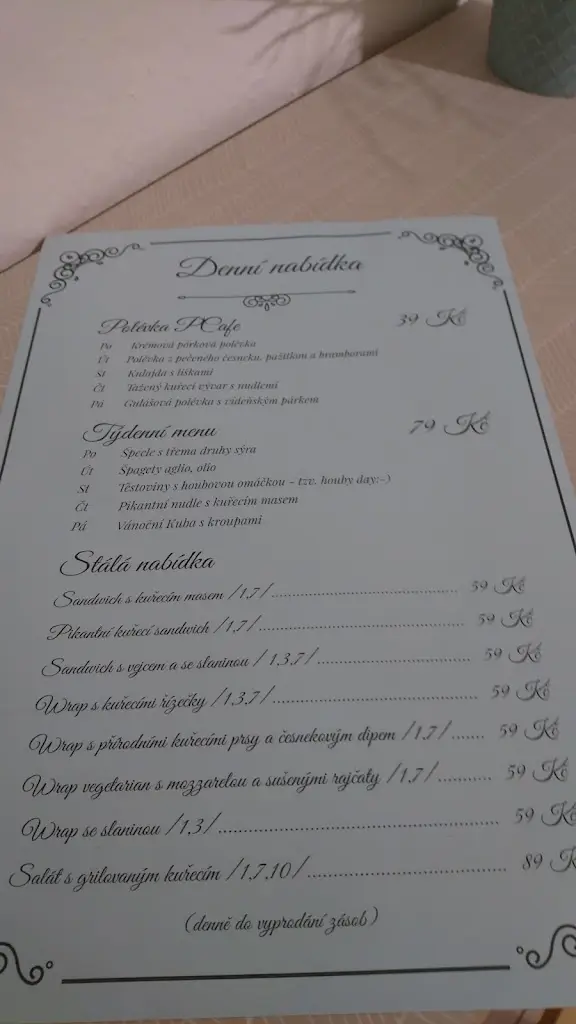 Denní nabídka
Polévka PCafe 39 Kč
Po Krémová pórková polévka
Út Polévka z pečeného česneku, pažitkou a bramborami
St Kulajda s liškami
Čt Tažený kuřecí vývar s nudlemi
Pá Gulášová polévka s vídeňským párkem
Týdenní menu 79 Kč
Po Špecle s třema druhy sýra
Út Špagety aglio, olio
St Těstoviny s houbovou omáčkou - tzv. houby day:-)
Čt Pikantní nudle s kuřecím masem
Pá Vánoční Kuba s kroupami
Stálá nabídka
Sandwich s kuřecím masem /1,7/ 59 Kč
Pikantní kuřecí sandwich /1,7/ 59 Kč
Sandwich s vejcem a se slaninou / 1,3,7/ 59 Kč
Wrap s kuřecími řízečky /1,3,7/ 59 Kč
Wrap s přírodními kuřecími prsy a česnekovým dipem /1,7/ 59 Kč
Wrap vegetarian s mozzarelou a sušenými rajčaty /1,7/ 59 Kč
Wrap se slaninou /1,3/ 59 Kč
Salát s grilovaným kuřecím /1,7,10/ 89 K
(denně do vyprodání zásob)